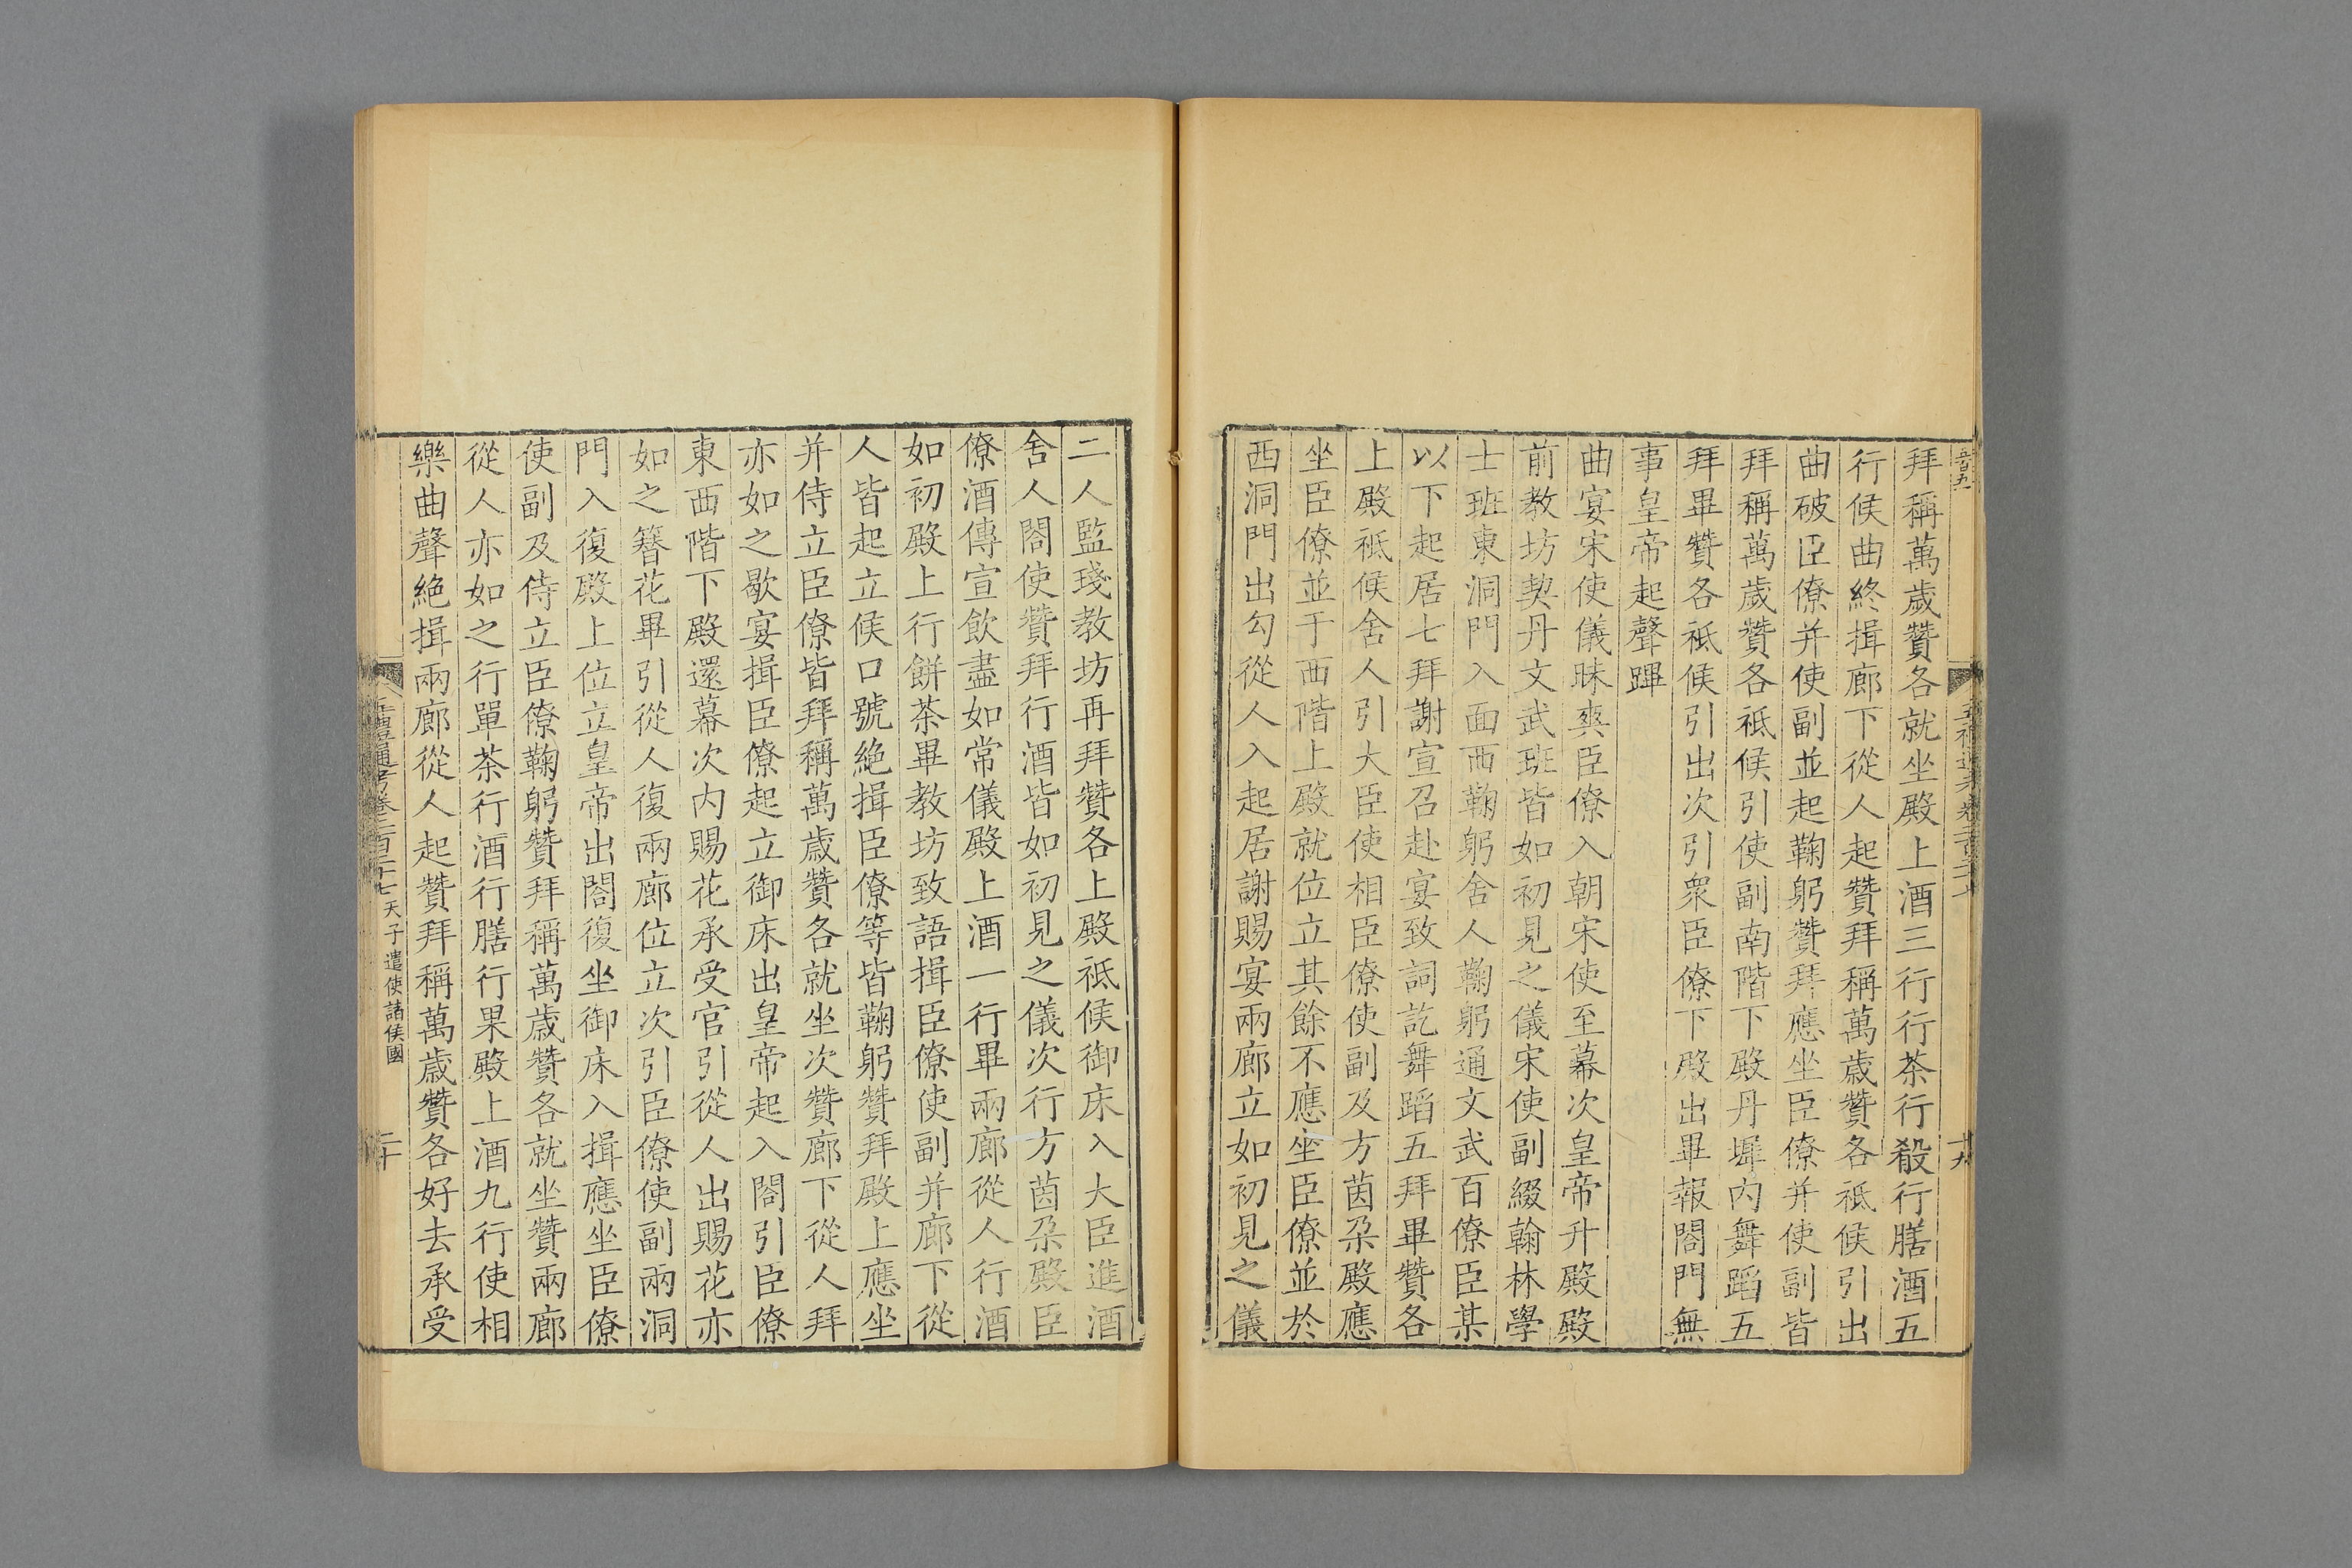 拜稱萬歲贊各就坐殿上酒三行行茶行殽行膳酒五
行候曲終揖廊下從人起贊拜稱萬歲贊各祗候引出
曲破臣僚并使副並起鞠躬贊拜應坐臣僚并使副皆
拜稱萬歲贊各祗候引使副南階下殿丹墀內舞蹈五
拜畢贊各祗候引出次引衆臣僚下殿出畢報閤門無
事皇帝起聲蹕
曲宴宋使儀昧爽臣僚入朝宋使至幕次皇帝升殿殿
前教坊契丹文武班皆如初見之儀宋使副綴翰林學
士班東洞門入面西鞠躬舍人鞠躬通文武百僚臣某
以下起居七拜謝宣召赴宴致詞訖舞蹈五拜畢贊各
上殿祗候舍人引大臣使相臣僚使副及方茵朶殿應
坐臣僚並于西階上殿就位立其餘不應坐臣僚並於
西洞門出勾從人入起居謝賜宴兩廊立如初見之儀
二人監琖教坊再拜贊各上殿祗候御床入大臣進酒
舍人閤使贊拜行酒皆如初見之儀次行方茵朶殿臣
僚酒傳宣飲盡如常儀殿上酒一行畢兩廊從人行酒
如初殿上行餅茶畢教坊致語揖臣僚使副并廊下從
人皆起立候口號絶揖臣僚等皆鞠躬贊拜殿上應坐
并侍立臣僚皆拜稱萬歲贊各就坐次贊廊下從人拜
亦如之歇宴揖臣僚起立御床出皇帝起入閤引臣僚
東西階下殿還幕次內賜花承受官引從人出賜花亦
如之簪花畢引從人復兩廊位立次引臣僚使副兩洞
門入復殿上位立皇帝出閤復坐御床入揖應坐臣僚
使副及侍立臣僚鞠躬贊拜稱萬歲贊各就坐贊兩廊
從人亦如之行單茶行酒行膳行果殿上酒九行使相
樂曲聲絶揖兩廊從人起贊拜稱萬歲贊各好去承受
五禮通考卷二百二十七 天子遣使諸侯國 二十